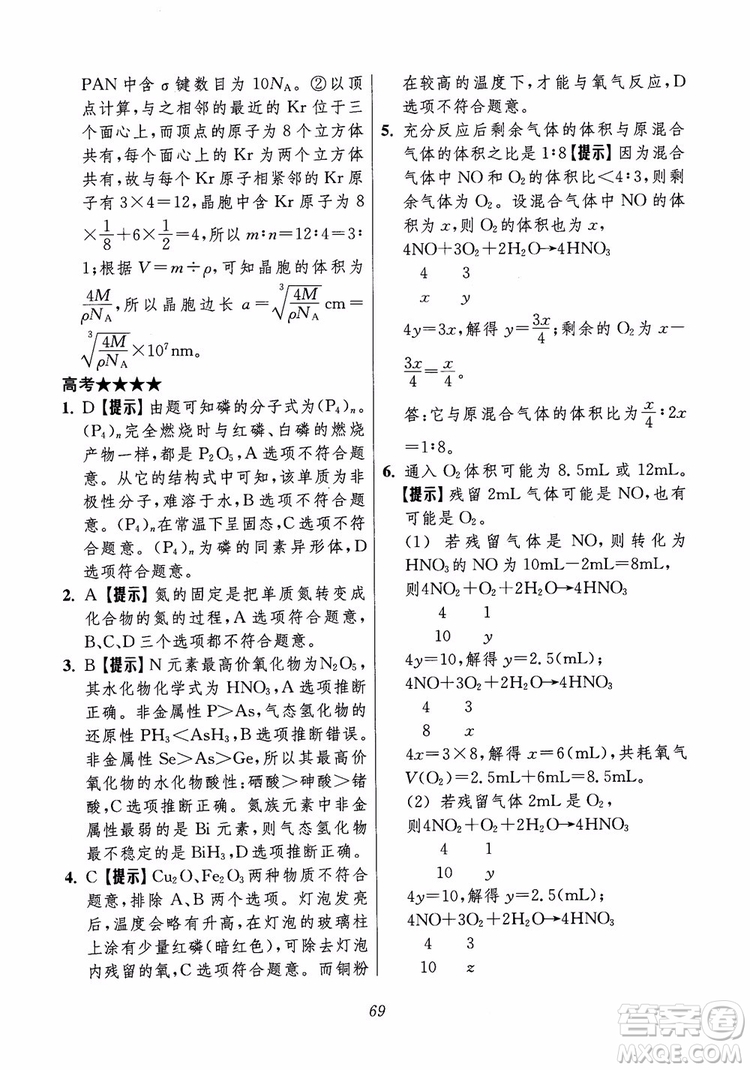 PAN中含σ键数目为10N_A。②以顶
点计算,与之相邻的最近的 Kr 位于三
个面心上,而顶点的原子为 8 个立方体
共有,每个面心的 Kr 为两个立方体共
有,故与每个 Kr 原子相紧邻的 Kr 原
子有 3×4=12,晶胞中含 Kr 原子为 8
×1/8+6×1/2=4,所以 m∶n=12∶4=3∶
1;根据 V=m÷ρ,可知晶胞的体积为
4M/ρN_A,所以晶胞边长 a=∛(4M/ρN_A)cm=
∛(4M/ρN_A)×10⁷nm。
高考★★★★
1. D【提示】由题可知磷的分子式为(P₄)ₙ。
(P₄)ₙ完全燃烧时与红磷、白磷的燃烧
产物一样,都是 P₂O₅,A 选项不符合题
意。从它的结构式中可知,该单质为非
极性分子,难溶于水,B 选项不符合题
意。(P₄)ₙ在常温下呈固态,C选项不符
合题意。(P₄)ₙ为磷的同素异形体,D
选项符合题意。
2. A【提示】氮的固定是把单质氮转变成
化合物的氮的过程,与事实不符合,
B、C、D 三个选项都不符合题意。
3. B【提示】N 元素最高价氧化物为N₂O₅,
其水化物化学式为 HNO₃,A 选项推断
正确。非金属性 P>As,气态氢化物的
还原性 PH₃<AsH₃,B 选项推断错误。
非金属性 Se>As>Ge,所以其最高价
氧化物的水化物酸性:硒酸>砷酸>锗
酸,C选项推断正确。氮族元素中非金
属性最弱的是 Bi 元素,故气态氢化物
最不稳定的是 BiH₃,D 选项推断正确。
4. C【提示】Cu₂O、Fe₂O₃ 两种物质不符合
题意,排除 A、B 两个选项。灯泡发亮
后,温度会略有升高,在灯泡的玻璃柱
上涂有少量红磷(暗红色),可除去灯泡
内残留的氧,C 选项符合题意。而铜粉
在较高的温度下,才能与氧气反应,D
选项不符合题意。
5. 充分反应后剩余气体的体积与原混合
气体的体积之比是 1∶8【提示】因为混合
气体中 NO 和 O₂ 的体积比<4∶3,则剩
余气体为 O₂。设混合气体中 NO 的体积
为 x,则 O₂ 的体积也为 x。
4NO+3O₂+2H₂O→4HNO₃
4 3
x y
4y=3x,解得 y=3x/4;剩余的 O₂为 x−
3x/4=x/4。
答:它与原混合气体的体积比为x/4∶2x
=1∶8。
6. 通入 O₂ 体积可能为 8.5mL 或 12mL。
【提示】残留 2mL 气体可能是 NO,也有
可能是 O₂。
(1) 若残留气体是 NO,则转化为
HNO₃ 的 NO 是 10mL−2mL=8mL,
则4NO₂+O₂+2H₂O→4HNO₃
4 1
10 y
4y=10,解得 y=2.5(mL);
4NO+3O₂+2H₂O→4HNO₃
4 3
8 x
4x=3×8,解得 x=6(mL),共耗氧气
V(O₂)=2.5mL+6mL=8.5mL。
(2) 若残留气体 2mL 是 O₂,
则4NO₂+O₂+2H₂O→4HNO₃
4 1
10 y
4y=10,解得 y=2.5(mL);
4NO+3O₂+2H₂O→4HNO₃
4 3
10 z
69
答案圈
MXQE.COM